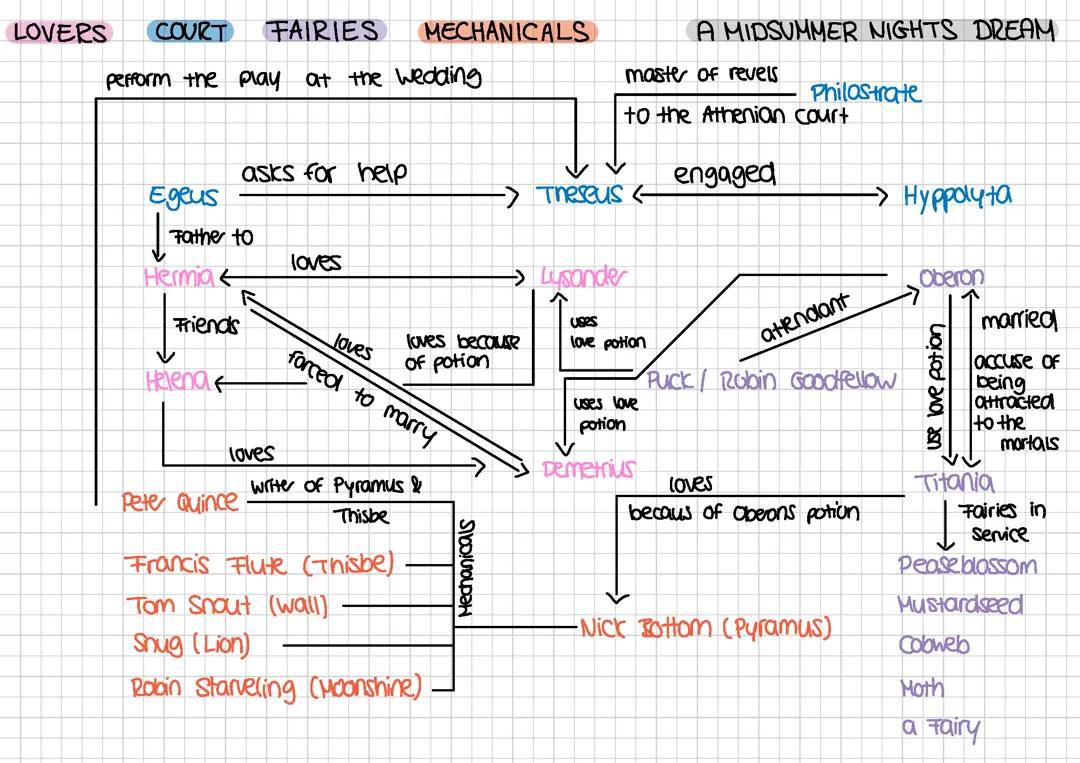 LOVERS COURT FAIRIES MECHANICALS A MIDSUMMER NIGHTS DREAM
perform the play at the wedding
master of revels
Philostrate
to the Athenian court
Egeus
asks for help
Theseus
engaged
Hyppolyta
Father to
Hermia
loves
Lysander
Oberon
Friends
loves
forced to marry
loves because
of potion
uses
love potion
attendant
use love potion
married
accuse of
being
attracted
to the
mortals
Helena
Puck / Robin Goodfellow
uses love
potion
loves
Demetrius
Titania
Peter Quince
writer of Pyramus &
Thisbe
loves
becaus of Oberons potion
Fairies in
service
Mechanicals
Francis Flute (Thisbe)
Peaseblossom
Tom Snout (Wall)
Mustardseed
Snug (Lion)
Nick Bottom (Pyramus)
Cobweb
Robin Starveling (Moonshine)
Moth
a Fairy